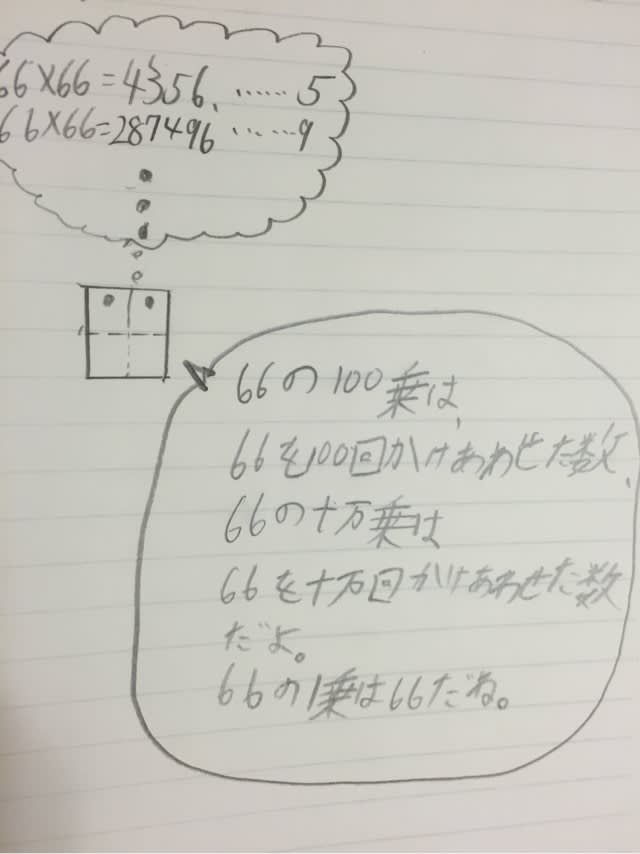 66×66=4356、……5
66×66=287496 ……9
66の100乗は、
66を100回かけあわせた数、
66の十万乗は
66を十万回かけあわせた数
だよ。
66の1乗は66だね。